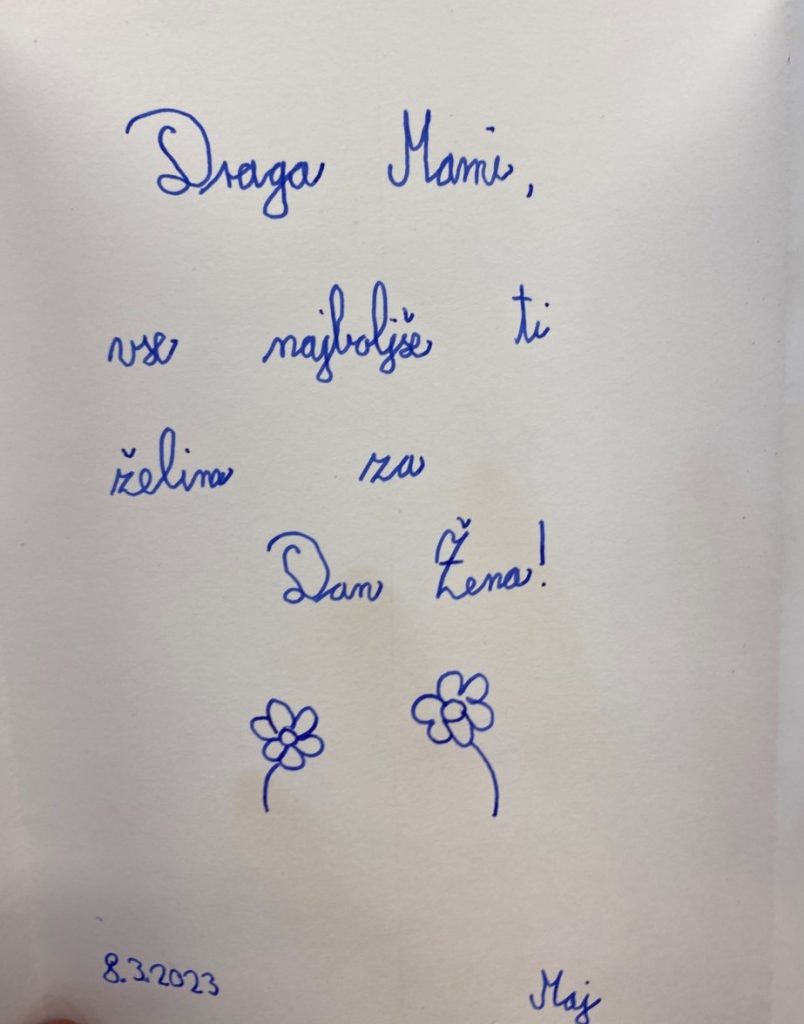 Draga Mami,
vse najboljše ti
želim za
Dan Žena!
8.3.2023 Maj